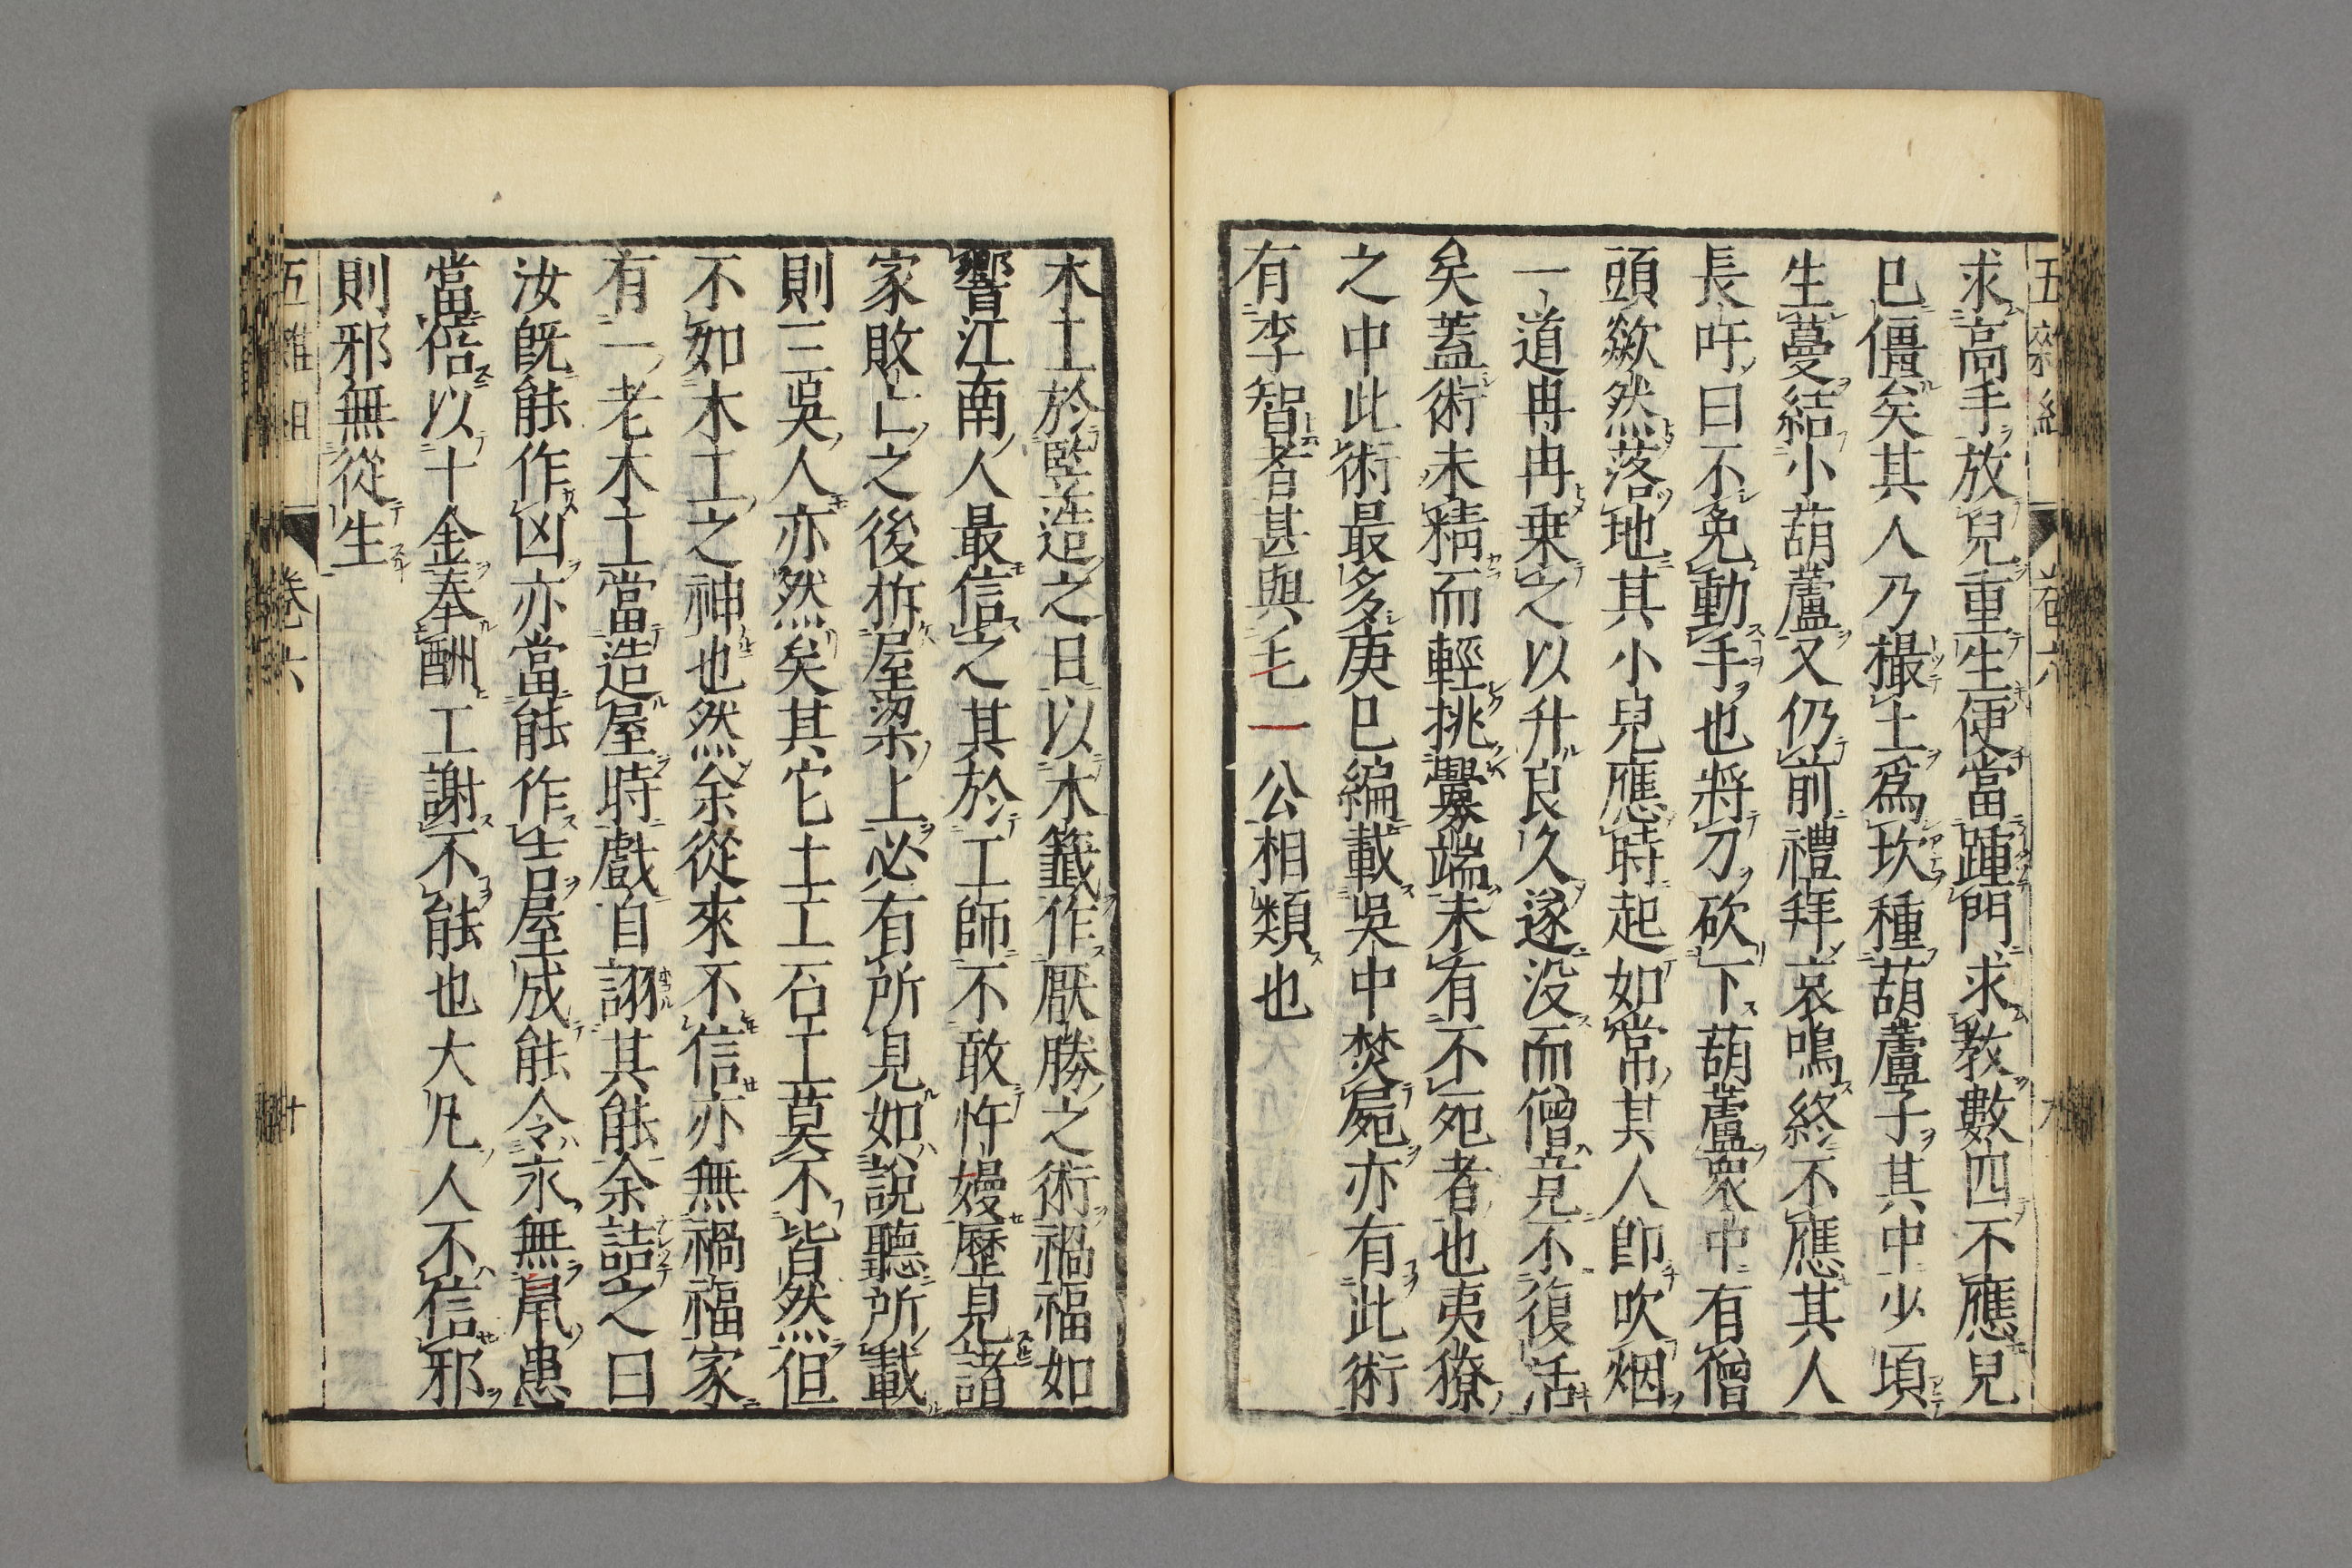 求高手放兒重生便當踵門求教數四不應兒
已僵矣其人乃撮土爲坎種葫蘆子其中少頃
生蔓結小葫蘆又仍前禮拜哀鳴終不應其人
長吁曰不免動手也將刀砍下葫蘆衆中有僧
頭欻然落地其小兒應時起如常其人卽吹烟
一道冉冉乗之以升良久遂没而僧竟不復活
矣蓋術未精而輕挑釁端未有不死者也夷獠
之中此術最多庚巳編載吳中焚屍亦有此術
有李智者甚與毛一公相類也
木工於竪造之日以木籤作厭勝之術禍福如
響江南人最信之其於工師不敢忤嫚歷見諸
家敗亡之後拆屋梁上必有所見如說聽所載
則三吳人亦然矣其它土工石工莫不皆然但
不如木工之神也然余從來不信亦無禍福家
有一老木工當造屋時戲自詡其能余詰之曰
汝旣能作凶亦當能作吉屋成能令永無鼠患
當倍以十金奉酬工謝不能也大凡人不信邪
則邪無從生
五雜組
卷六
十